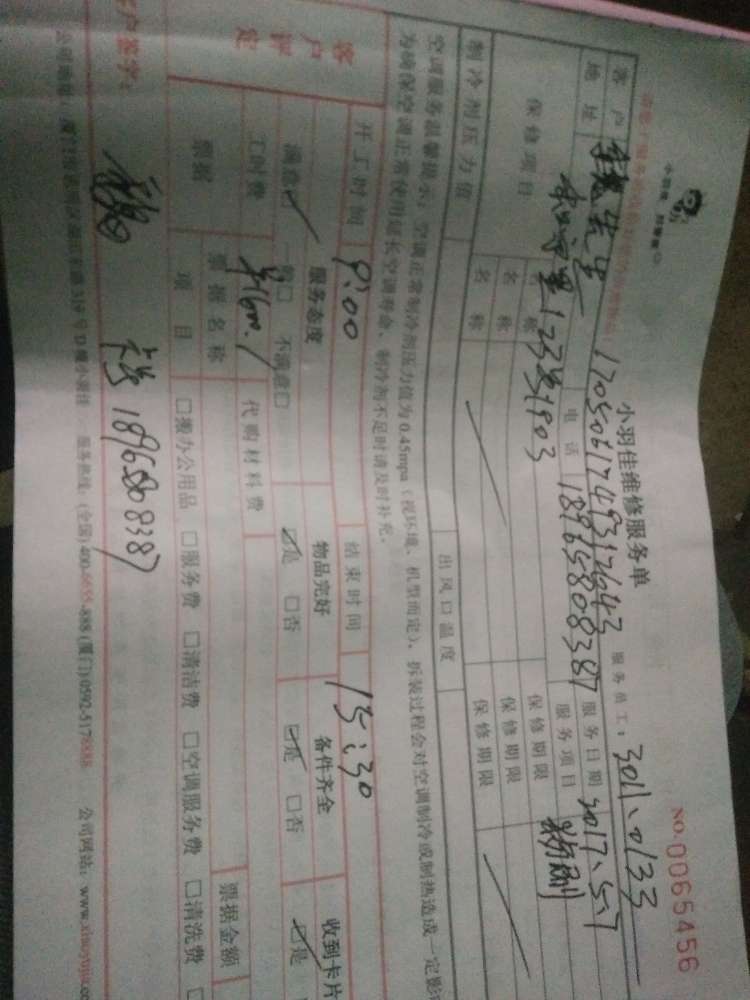 小羽佳维修服务单
NO.0065456
1705061749317543 服务员工：3011、0133
客户 先生 电话 18965808387 服务日期 2017、5、7
地址 12331903 服务项目 粉刷
保修项目 名称 保修期限
名称 保修期限
名称 保修期限
制冷剂压力值 出风口温度
空调服务温馨提示：空调正常制冷剂压力值为0.45mpa（视环境、机型而定），拆装过程会对空调制冷或制热造成一定影
为确保空调正常使用延长空调寿命，制冷剂不足时请及时补充。
开工时间 9:00 结束时间 15:30
客户评定 服务态度 物品完好 备件齐全 收到卡片
满意☑ 一般□ 不满意□ ☑是 □否 ☑是 □否 ☑是
工时费 代购材料费
票据 票据名称 票据金额
项目 □搬办公用品 □服务费 □清洁费 □空调服务费 □清洗费
客户签字： 18965808387
公司地址： 号 服务热线：(全国)400-6655-888 (厦门)0592-5178888 公司网站：www.xiaoyujia.co